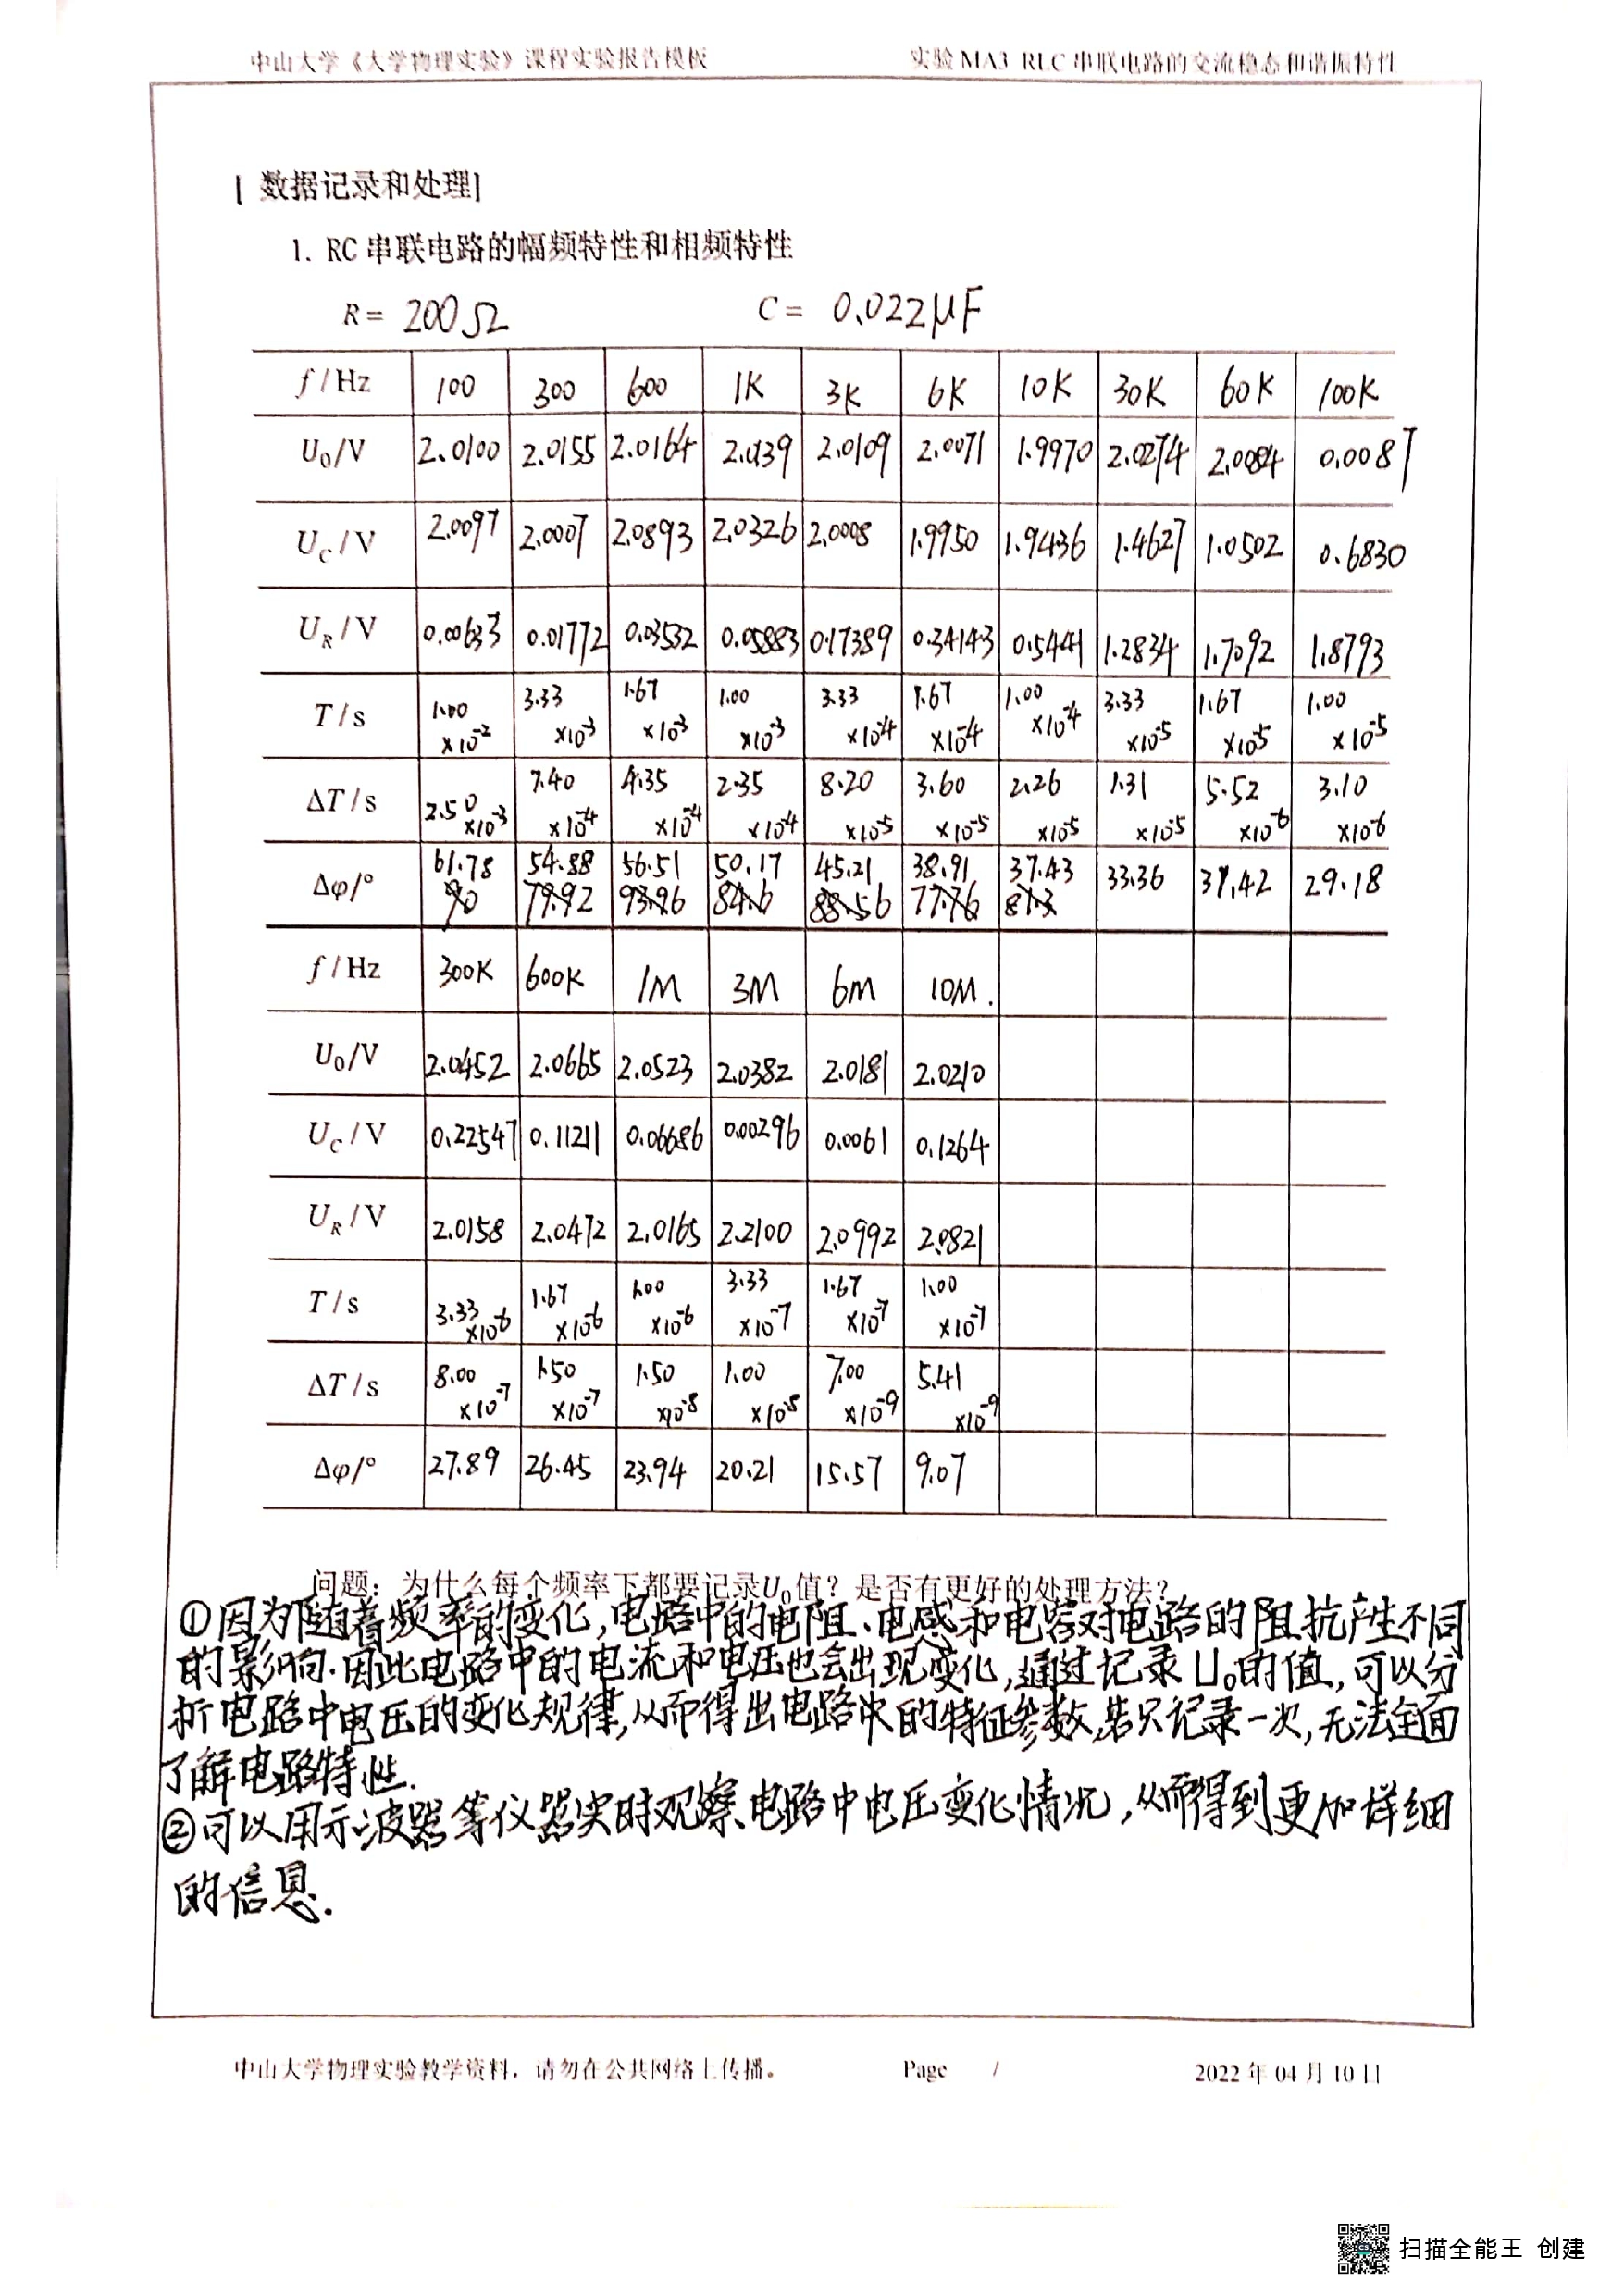 中山大学《大学物理实验》课程实验报告模板 实验 MA3 RLC 串联电路的交流稳态和谐振特性
[ 数据记录和处理]
1. RC 串联电路的幅频特性和相频特性
R = 200Ω C = 0.022μF
f / Hz 100 300 600 1K 3K 6K 10K 30K 60K 100K
U₀/V 2.0100 2.0155 2.0164 2.0139 2.0109 2.0071 1.9970 2.0274 2.0084 0.0087
U_C / V 2.0097 2.0007 2.0893 2.0326 2.0008 1.9950 1.9436 1.4627 1.0502 0.6830
U_R / V 0.00633 0.01772 0.03532 0.05883 0.17389 0.34143 0.5441 1.2834 1.7092 1.8793
T / s 1.00×10⁻² 3.33×10⁻³ 1.67×10⁻³ 1.00×10⁻³ 3.33×10⁻⁴ 1.67×10⁻⁴ 1.00×10⁻⁴ 3.33×10⁻⁵ 1.67×10⁻⁵ 1.00×10⁻⁵
ΔT / s 2.50×10⁻³ 7.40×10⁻⁴ 4.35×10⁻⁴ 2.35×10⁻⁴ 8.20×10⁻⁵ 3.60×10⁻⁵ 2.26×10⁻⁵ 1.31×10⁻⁵ 5.52×10⁻⁶ 3.10×10⁻⁶
Δφ/° 61.78 54.88 56.51 50.17 45.21 38.91 37.43 33.36 31.42 29.18
90 79.92 93.96 84.6 88.56 77.76 81.3
f / Hz 300K 600K 1M 3M 6M 10M.
U₀/V 2.0452 2.0665 2.0523 2.0382 2.0181 2.0210
U_C / V 0.22547 0.11211 0.06686 0.00296 0.0061 0.1264
U_R / V 2.0158 2.0472 2.0165 2.2100 2.0992 2.0821
T / s 3.33×10⁻⁶ 1.67×10⁻⁶ 1.00×10⁻⁶ 3.33×10⁻⁷ 1.67×10⁻⁷ 1.00×10⁻⁷
ΔT / s 8.00×10⁻⁷ 1.50×10⁻⁷ 1.50×10⁻⁸ 1.00×10⁻⁸ 7.00×10⁻⁹ 5.41×10⁻⁹
Δφ/° 27.89 26.45 23.94 20.21 15.57 9.07
问题：为什么每个频率下都要记录U₀值？是否有更好的处理方法？
①因为随着频率的变化,电路中的电阻、电感和电容对电路的阻抗产生不同
的影响.因此电路中的电流和电压也会出现变化,通过记录U₀的值,可以分
析电路中电压的变化规律,从而得出电路中的特征参数,若只记录一次,无法全面
了解电路特性.
②可以用示波器等仪器实时观察电路中电压变化情况,从而得到更加详细
的信息.
中山大学物理实验教学资料，请勿在公共网络上传播。 Page / 2022 年 04 月 10 日
扫描全能王 创建